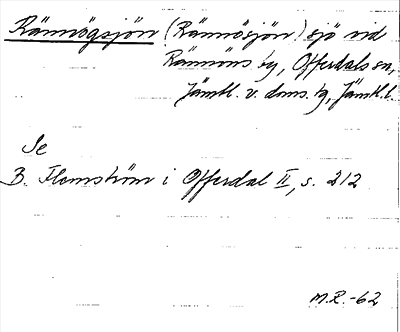 Rännögsjön (Rännösjön) sjö vid
Rännöns by, Offerdals sn,
Jämtl. v. doms. tg, Jämtl. l.
Se
B. Flemström i Offerdal II, s. 212
M.R.-62